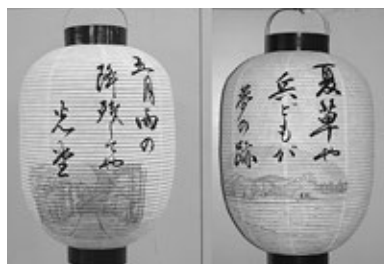 五月雨の
降残してや
光堂
夏草や
兵どもが
夢の跡